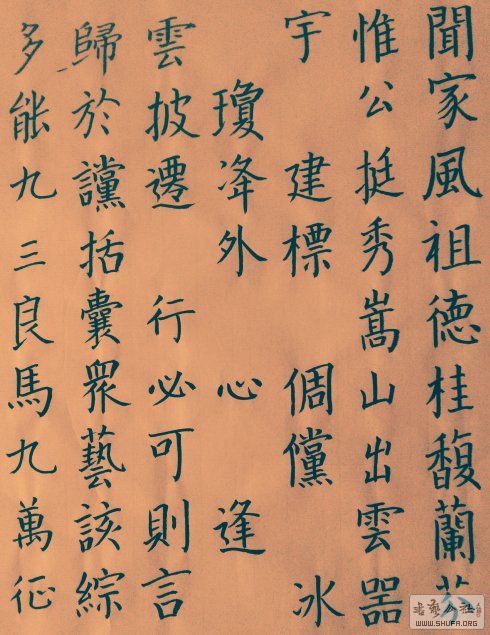 聞家風祖德桂馥蘭芬
惟公挺秀嵩山出雲器
宇 建標 倜儻 冰
瓊夆外 心 逢
雲披遷 行必可則言
歸於讜括囊眾藝該綜
多能九三良馬九萬征
书艺公社
WWW.SHUFA.ORG